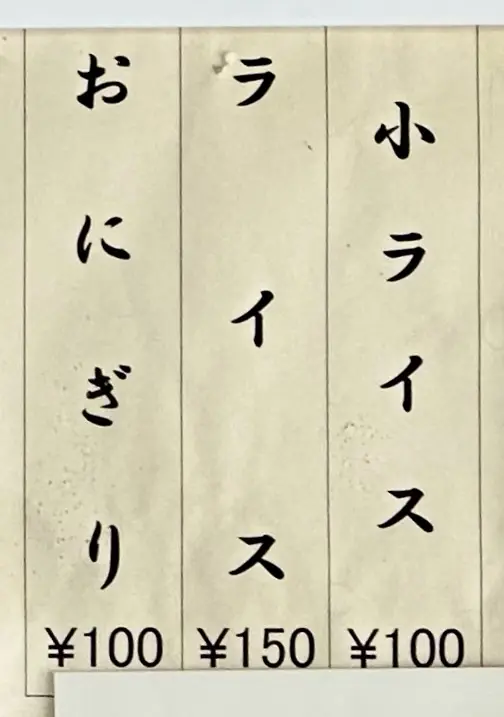 小ライス
¥100
ライス
¥150
おにぎり
¥100